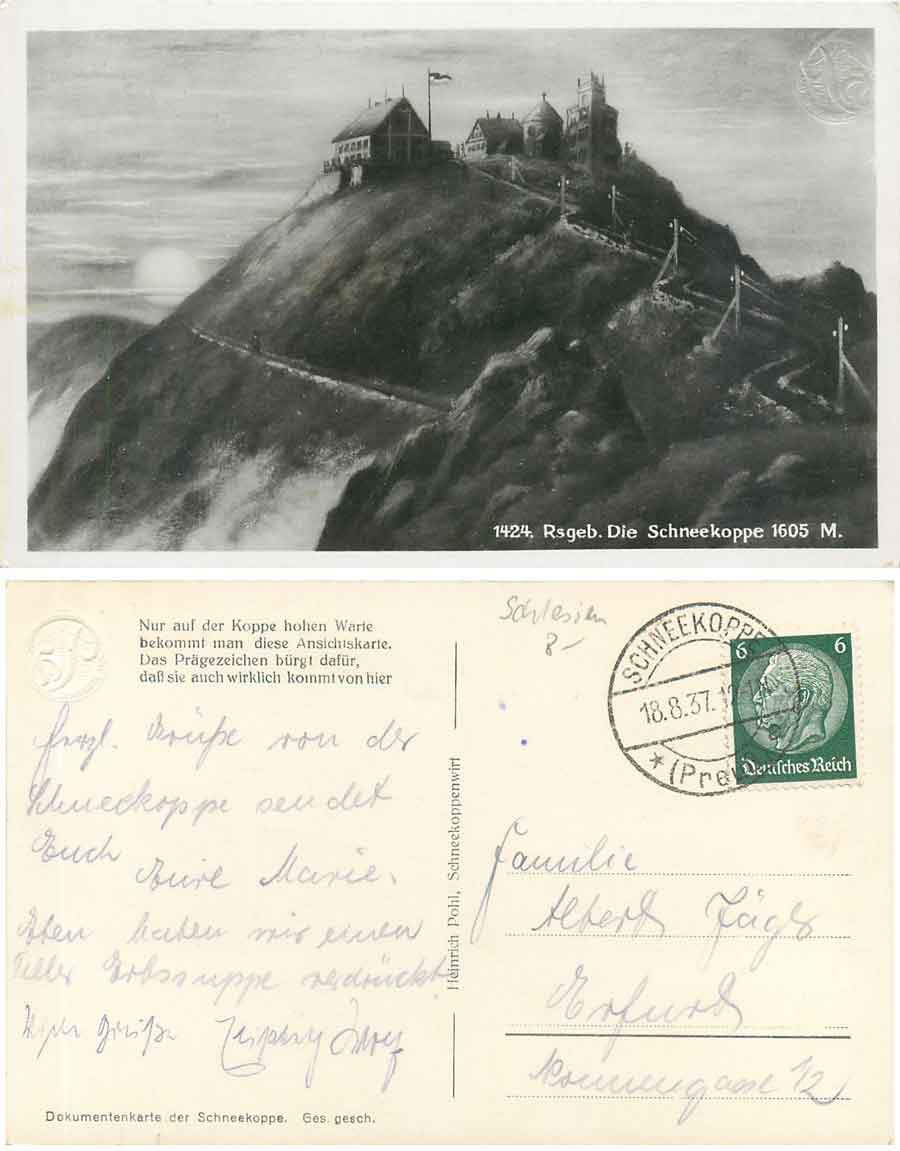 1424. Rsgeb. Die Schneekoppe 1605 M.
Nur auf der Koppe hohen Warte
bekommt man diese Ansichtskarte.
Das Prägezeichen bürgt dafür,
daß sie auch wirklich kommt von hier
Herzl. Grüße von der
Schneekoppe sendet
Euch
Eure Marie.
Eben haben wir einen
Teller Erbssuppe verdrückt
Grüße
Dokumentenkarte der Schneekoppe. Ges. gesch.
Heinrich Pohl, Schneekoppenwirt
Schlesien
8-
SCHNEEKOPPE
18.8.37.
6 6
Deutsches Reich
Familie
Albert
Erfurt
Nonnengasse 1/2